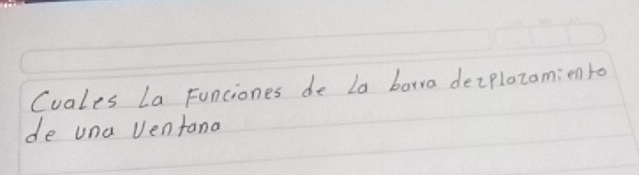 Cuales La Funciones de La barra dezplazamiento
de una Ventana